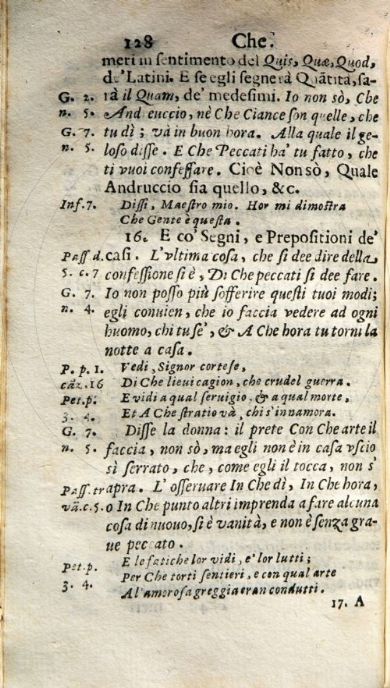 128 Che.
meri in sentimento del Quis, Quæ, Quod,
de' Latini. E se egli segnerà Quãtità, sa-
G. 2. rà il Quam, de' medesimi. Io non sò, Che
n. 5. Andreuccio, nè Che Ciance son quelle, che
G. 7. tu dì; và in buon hora. Alla quale il ge-
n. 5. loso disse. E Che Peccati ha' tu fatto, che
ti vuoi confessare. Cioè Non sò, Quale
Andruccio sia quello, &c.
Inf. 7. Dissi, Maestro mio. Hor mi dimostra
Che Gente è questa.
16. E co' Segni, e Prepositioni de'
Pass. d. casi. L'vltima cosa, che si dee dire della
5. c. 7 confessione si è, Di Che peccati si dee fare.
G. 7. Io non posso più sofferire questi tuoi modi;
n. 4. egli conuien, che io faccia vedere ad ogni
huomo, chi tu se', & A Che hora tu torni la
notte a casa.
P. p. 1. Vedi, Signor cortese,
cãz. 16 Di Che lieui cagion, che crudel guerra.
Pet. p. E vidi a qual seruigio, & a qual morte,
3. 4. Et A Che stratio và, chi s'innamora.
G. 7. Disse la donna: il prete Con Che arte il
n. 5. faccia, non sò, ma egli non è in casa vscio
sì serrato, che, come egli il tocca, non s'
Pass. tr apra. L'osseruare In Che dì, In Che hora,
vã. c. 5. o In Che punto altri imprenda a fare alcuna
cosa di nuouo, si è vanità, e non è senza gra-
ue peccato.
Pet. p. E le fatiche lor vidi, e' lor lutti;
3. 4. Per Che torti sentieri, e con qual arte
A l'amorosa greggia eran condutti.
17. A